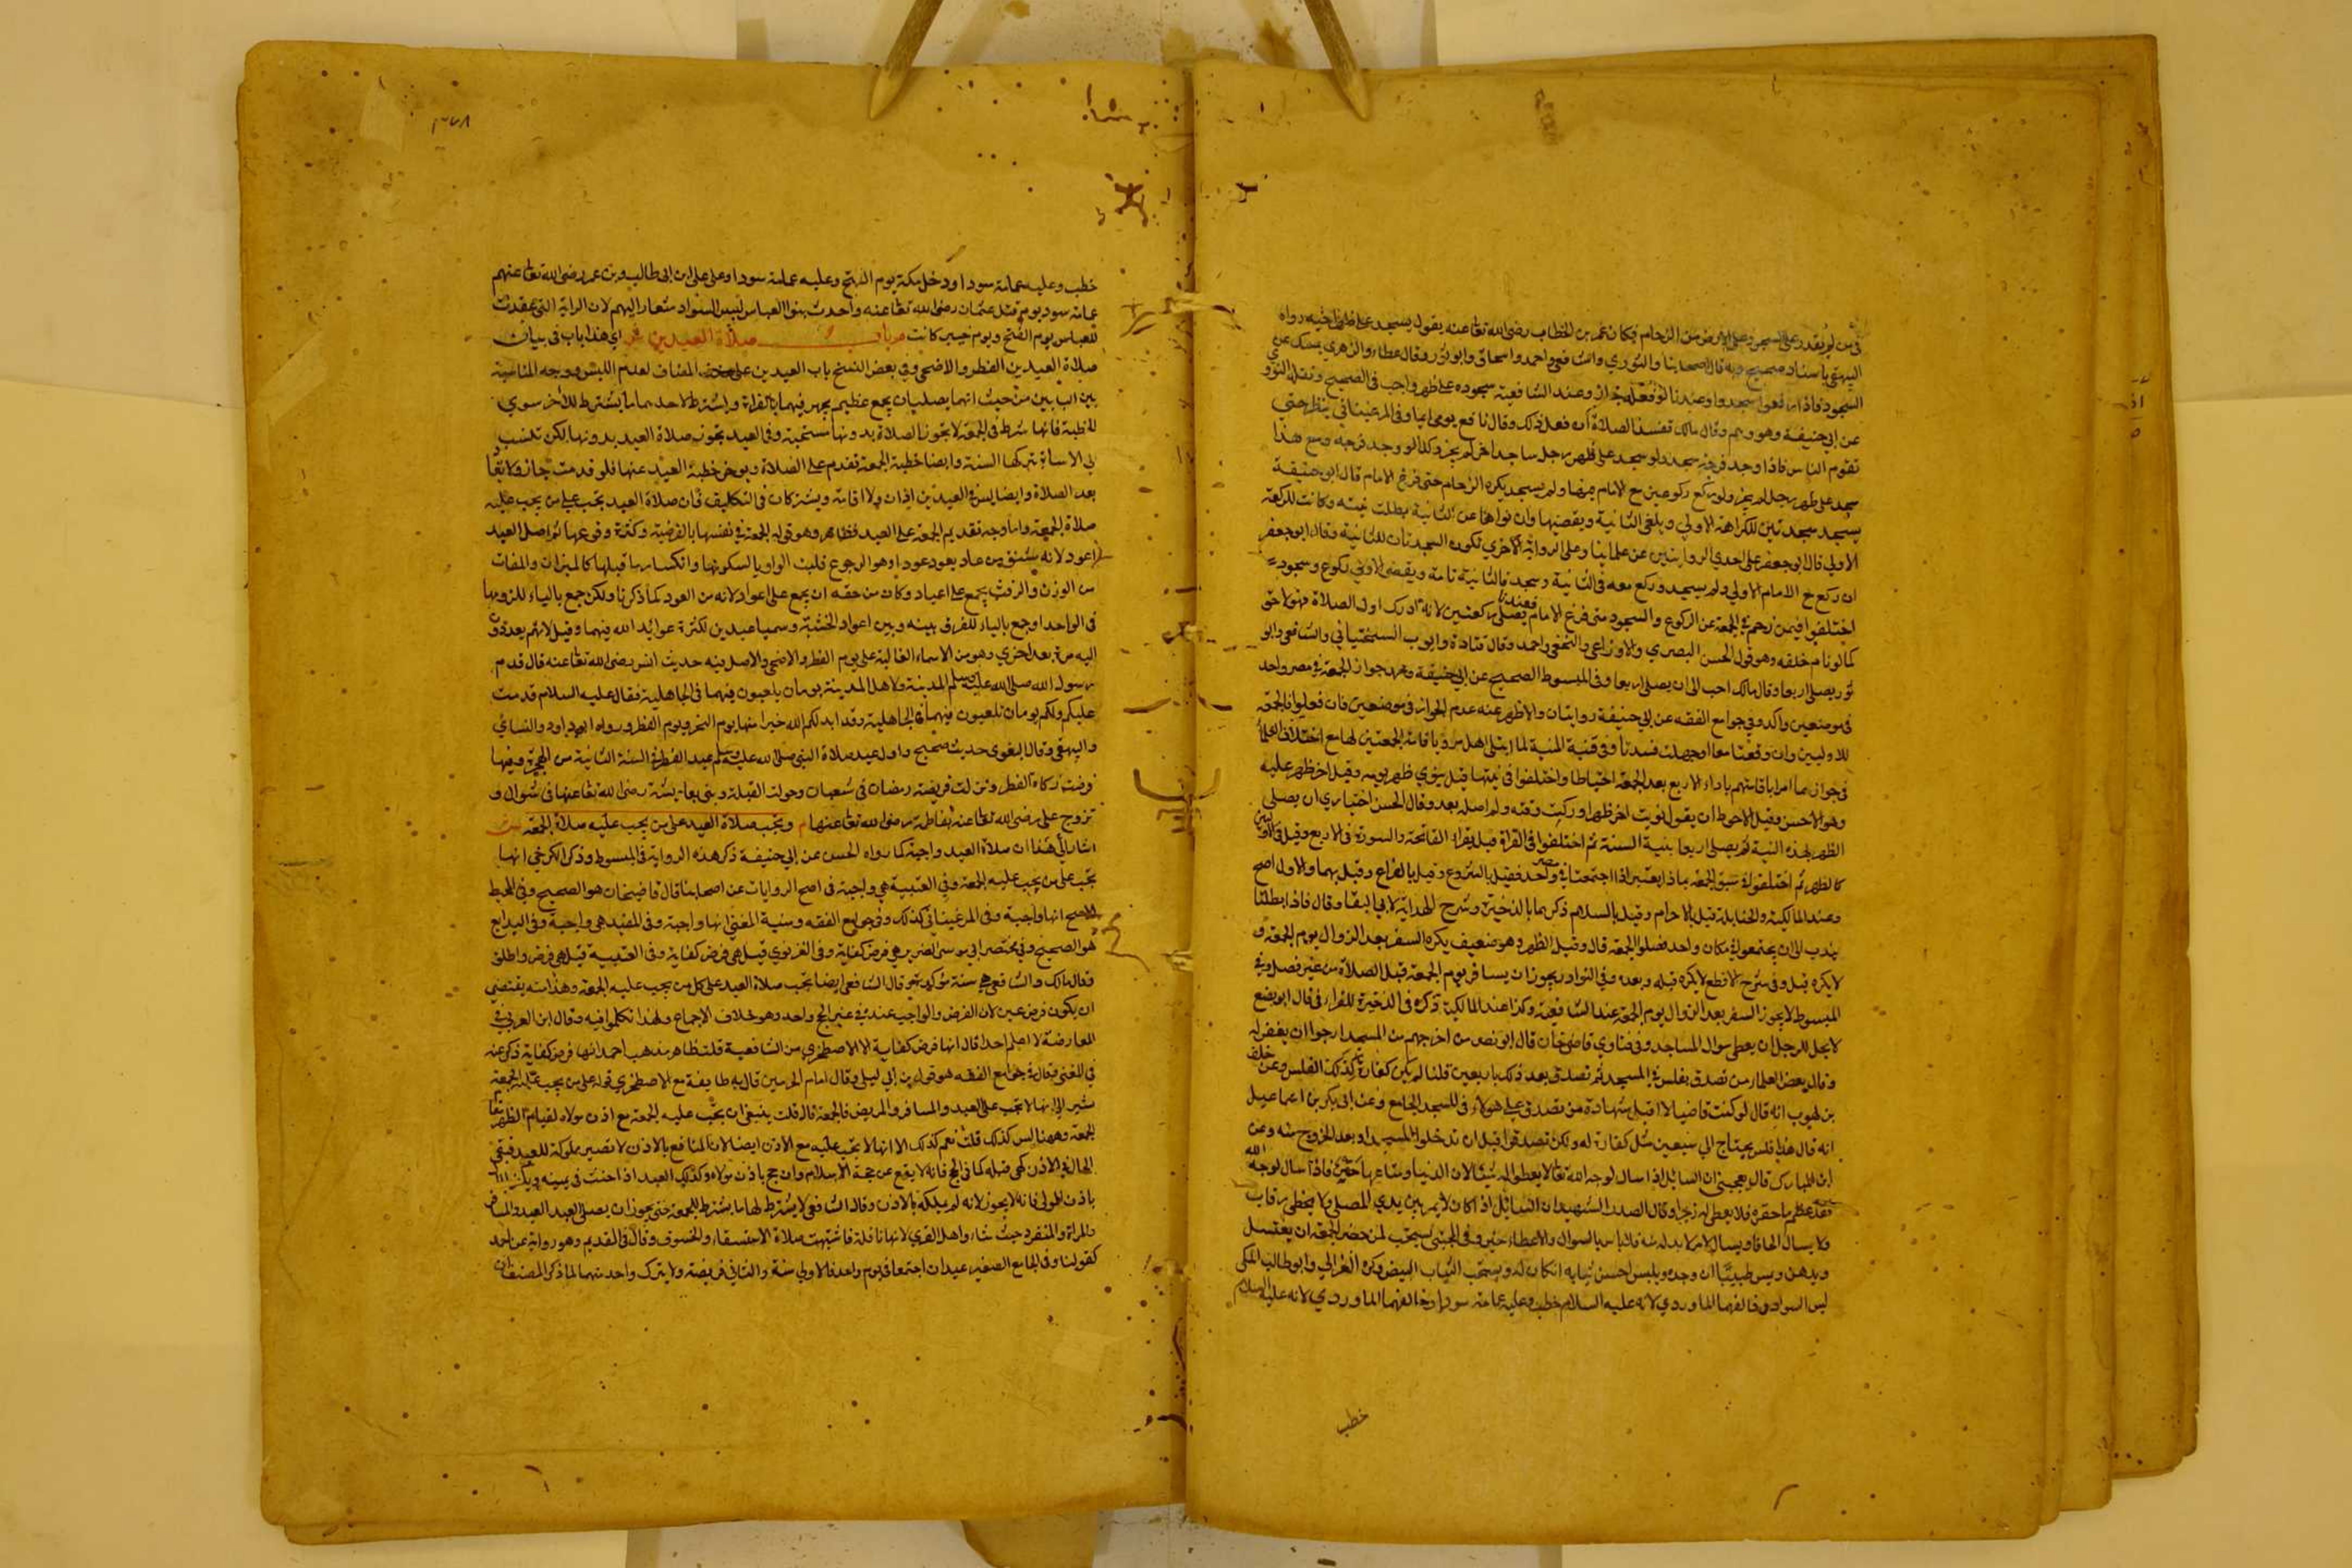 فمن لم يقدر على السجود على الارض من الزحام فكان عمر بن الخطاب رضى الله تعا عنه يقول يسجد على ظهر اخيه رواه
البيهقي باسناد صحيح وبه قال اصحابنا والثوري والشافعي واحمد واسحاق وابو ثور وقال عطاء والزهري يمسك عن
السجود فاذا رفعوا سجدوا وعندنا لو فعله جاز وعند الشافعية سجوده على ظهر واجب في الصحيح ونقله النووي
عن ابي حنيفة وهو وهم وقال مالك تفسد الصلاة ان فعل ذلك وقال نافع يومي ايما وفي المرغيناني ينظر حتي
تقوم الناس فاذا وجد فرجة سجد ولو سجد على ظهر رجل ساجدا خر لم يجز وكذا لو وجد فرجة ومع هذا
سجد على ظهر رجل لم يجز ولو ركع ركوعين مع الامام فيها ولم يسجد يكره الزحام حتى فرغ الامام قال ابو حنيفة
يسجد سجدتين للركعة الاولي ويلغى الثانية ويقضيها وان نواهما عن الثانية بطلت نيته وكانت للركعة
الاولي قال ابو جعفر على احدي الروايتين عن علماينا وعلى الرواية الاخري تكون السجدتان للثانية وقال ابو جعفر
ان ركع مع الامام الاولي ولم يسجد وركع معه في الثانية وسجد فالثانية تامة ويقضى الاولي بركوع وسجود
اختلفوا فيمن زحم في الجمعة عن الركوع والسجود حتى فرغ الامام فعندنا يصلي ركعتين لانه ادرك اول الصلاة فهو لاحق
كما لو نام خلفه وهو قول الحسن البصري والاوزاعي والنخعي واحمد وقال قتادة وايوب السختياني والشافعي وابو
ثور يصلي اربعا وقال مالك احب الى ان يصلي اربعا وفى المبسوط الصحيح عن ابي حنيفة ومحمد جواز الجمعة في مصر واحد
في موضعين واكد وفي جوامع الفقه عن ابي حنيفة روايتان والاظهر عنه عدم الجواز في موضعين فان فعلوا فالجمعة
للاوليين وان وقعتا معا او جهلت فسدتا وفي قنية المنية لما ابتلي اهل مرو باقامة الجمعتين لها مع اختلاف العلماء
في جوازهما امر ايمتهم باداء الاربع بعد الجمعة احتياطا واختلفوا في نيتها قيل ينوي ظهر يومه وقيل اخر ظهر عليه
وهو الاحسن وقيل الاحوط ان يقول نويت اخر ظهر ادركت وقته ولم اصله بعد وقال الحسن اختياري ان يصلي
الظهر بهذه النية ثم يصلي اربعا بنية السنة ثم اختلفوا في القراة قيل يقرا الفاتحة والسورة في الاربع وقيل في الاوليين
كالظهر ثم اختلفوا في سبق الجمعة بماذا يعتبر اذا اجتمعتا في مصر واحد فقيل بالشروع وقيل بالفراغ وقيل بهما والاول اصح
وعند المالكية والحنابلة قيل بالاحرام وقيل بالسلام ذكرهما بالذخيرة وشرح الهداية لابي البقا وقال فاذا بطلتا
يندب الى ان يجتمعوا في مكان واحد فصلوا الجمعة قال وقيل الظهر وهو ضعيف يكره السفر بعد الزوال يوم الجمعة و
لا يكره قبل وفى شرح الاقطع لا يكره قبله وبعده وفي النوادر يجوز ان يسافر يوم الجمعة قبل الصلاة من غير فصل وفي
المبسوط لا يجوز السفر بعد الزوال يوم الجمعة عند الشافعية وكذا عند المالكية ذكره في الذخيرة للقرافي قال ابو نصر
لا يحل للرجل ان يعطى سوال المساجد وفي فتاوي قاضي خان قال ابو نصر من اخرجهم من المسجد ارجوا ان يغفر له
وقال بعض العلماء من تصدق بفلس في المسجد ثم تصدق بعد ذلك باربعين فلسا لم يكن كفارة لذلك الفلس وعن خلف
بن ايوب انه قال لو كنت قاضيا لا اقبل شهادة من تصدق على هولاء في المسجد الجامع وعن ابي بكر بن اسماعيل
انه قال هذا فلس يحتاج الي سبعين مثل كفارة له ولكن تصدقوا قبل ان تدخلوا المسجد او بعد الخروج منه وعن
ابن المبارك قال يعجبني ان السائل اذا سال لوجه الله تعا لا يعطى له شيئا لان الدنيا ومتاعها حقير فاذا سال لوجه الله
فقد عظم ما حقره فلا يعطى له زجرا وقال الصدر الشهيد ان السائل اذا كان لا يمر بين يدي المصلي ولا يتخطى رقاب
ولا يسال الحافا ويسال لامر لا بد له منه فلا باس بالسوال والاعطاء حينئذ وفي المجتبى يستحب لمن حضر الجمعة ان يغتسل
ويدهن ويمس طيبا ان وجده ويلبس احسن ثيابه ان كان له ويستحب الثياب البيض وكره الغزالي وابو طالب المكي
لبس السواد وخالفهما الماوردي لانه عليه السلام خطب وعليه عمامة سودا وخالفهما الماوردي لانه عليه السلام
خطب
خطب وعليه عمامة سودا ودخل مكة يوم الفتح وعليه عمامة سودا وعلى على ابن ابى طالب وبن عمر رضى الله تعا عنهم
عمامة سود يوم قتل عثمان رضى الله تعا عنه واحدث بنوا العباس لبس السواد شعارا لهم لان الراية التي عقدت
للعباس يوم الفتح ويوم حنين كانت م باب صلاة العيدين ش اي هذا باب في بيان
صلاة العيدين الفطر والاضحى وفي بعض النسخ باب العيدين على حذف المضاف لعدم اللبس ووجه المناسبة
بين البابين من حيث انهما يصليان بجمع عظيم يجهر فيهما بالقراءة ويشترط لاحدهما ما يشترط للاخر سوي
الخطبة فانها شرط في الجمعة لا تجوز الصلاة بدونها مستحبة وفي العيد تجوز صلاة العيد بدونها لكن تنسب
الي الاساءة بتركها السنة وايضا خطبة الجمعة تقدم على الصلاة ويوخر خطبة العيد عنها فلو قدمت جاز ولا تعاد
بعد الصلاة وايضا ليس في العيدين اذان ولا اقامة ويشتركان في التكليف فان صلاة العيد تجب على من يجب عليه
صلاة الجمعة واما وجه تقديم الجمعة على العيد فظاهر وهو قوله الجمعة في نفسها بالفرضية وكثرة وقوعها ثم اصل العيد
اعود لانه مشتق من عاد يعود عودا وهو الرجوع قلبت الواو يا لسكونها وانكسار ما قبلها كالميزان والميقات
من الوزن والوقت يجمع على اعياد وكان من حقه ان يجمع على اعواد لانه من العود كما ذكرنا ولكن جمع بالياء للزومها
في الواحد او جمع بالياء للفرق بينه وبين اعواد الخشبة وسميا عيدين لكثرة عوائد الله فيهما وقيل لانهم يعودون
اليه مرة بعد اخري وهو من الاسماء الغالبة على يوم الفطر والاضحى والاصل فيه حديث انس رضى الله تعا عنه قال قدم
رسول الله صلى الله عليه وسلم المدينة ولاهل المدينة يومان يلعبون فيهما في الجاهلية فقال عليه السلام قدمت
عليكم ولكم يومان تلعبون فيهما في الجاهلية وقد ابدلكم الله خيرا منهما يوم النحر ويوم الفطر ورواه ابو داود والنسائي
والبيهقي وقال البغوى حديث صحيح واول عيد صلاة النبي صلى الله عليه وسلم عيد الفطر في السنة الثانية من الهجرة وفيها
فرضت زكاة الفطر ونزلت فريضة رمضان في شعبان وحولت القبلة وبنى بعايشة رضى الله تعا عنها في شوال و
تزوج علي رضى الله تعا عنه بفاطمة رضى الله تعا عنها م وتجب صلاة العيد على من يجب عليه صلاة الجمعة ش
اشار الى هذا ان صلاة العيد واجبة كما رواه الحسن عن ابي حنيفة ذكر هذه الرواية في المبسوط وذكر الكرخي انها
تجب على من يجب عليه الجمعة وفي القنية هي واجبة في اصح الروايات عن اصحابنا قال قاضيخان هو الصحيح وفي المحيط
الاصح انها واجبة وفى المرغيناني كذلك وفي جوامع الفقه ومنية المفتي انها واجبة وفي المفيد هي واجبة وفي البدايع
هو الصحيح وفي مختصر ابي موسى الضرير هي فرض كفاية وفى الغزنوي قيل هي فرض كفاية وفي القنية قيل هي فرض واطلق
وقال مالك والشافعي هي سنة مؤكدة قال الشافعي ايضا تجب صلاة العيد على كل من يجب عليه الجمعة وهذا منه يقتضي
ان يكون فرض عين لان الفرض والواجب عنده في غير الحج واحد وهو خلاف الاجماع ولهذا تكلموا فيه وقال ابن العربي في
المعارضة لا اعلم احدا قال انها فرض كفاية الا الاصطخري من الشافعية قلت ظاهر مذهب احمد انها فرض كفاية ذكر عنه
في المغني وقال في جوامع الفقه هو قول بن ابي ليلى وقال امام الحرمين قال به طايفة مع الاصطخري قوله على من يجب عليه الجمعة
يشير الي انها لا تجب على العبد والمسافر والمريض فالجمعة قال قلت ينبغي ان تجب عليه الجمعة مع اذن مولاه لقيام الظهر مقام
الجمعة وههنا ليس كذلك قلت نعم كذلك الا انها لا تجب عليه مع الاذن ايضا لان المنافع بالاذن لا تصير مملوكة للعبد فبقي
الحال في الاذن كهى قبله كما في الحج فانه لا يقع عن حجة الاسلام وان حج باذن مولاه وكذلك العبد اذا حنث في يمينه وكفر بالمال
باذن المولى فانه لا يجوز لانه لم يملكه بالاذن وقال الشافعي لا يشترط لها ما يشترط للجمعة حتى يجوز ان يصلي العبد العيد والمسافر
والمراة والمنفرد حيث شاء واهل القري لانها نافلة فاشبهت صلاة الاستسقاء والخسوف وقال في القديم وهو رواية عن احمد
كقولنا وفي الجامع الصغير عيدان اجتمعا في يوم واحد فالاولي سنة والثاني فريضة ولا يترك واحد منهما لما ذكر المصنف ان